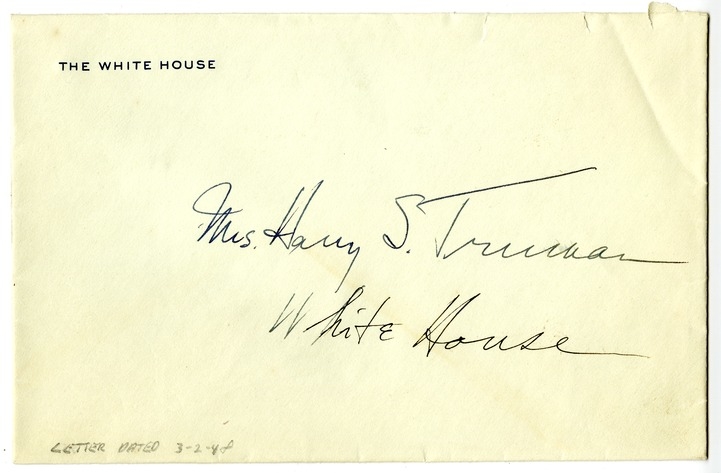 THE WHITE HOUSE
Mrs. Harry S. Truman
White House
LETTER DATED 3-2-48